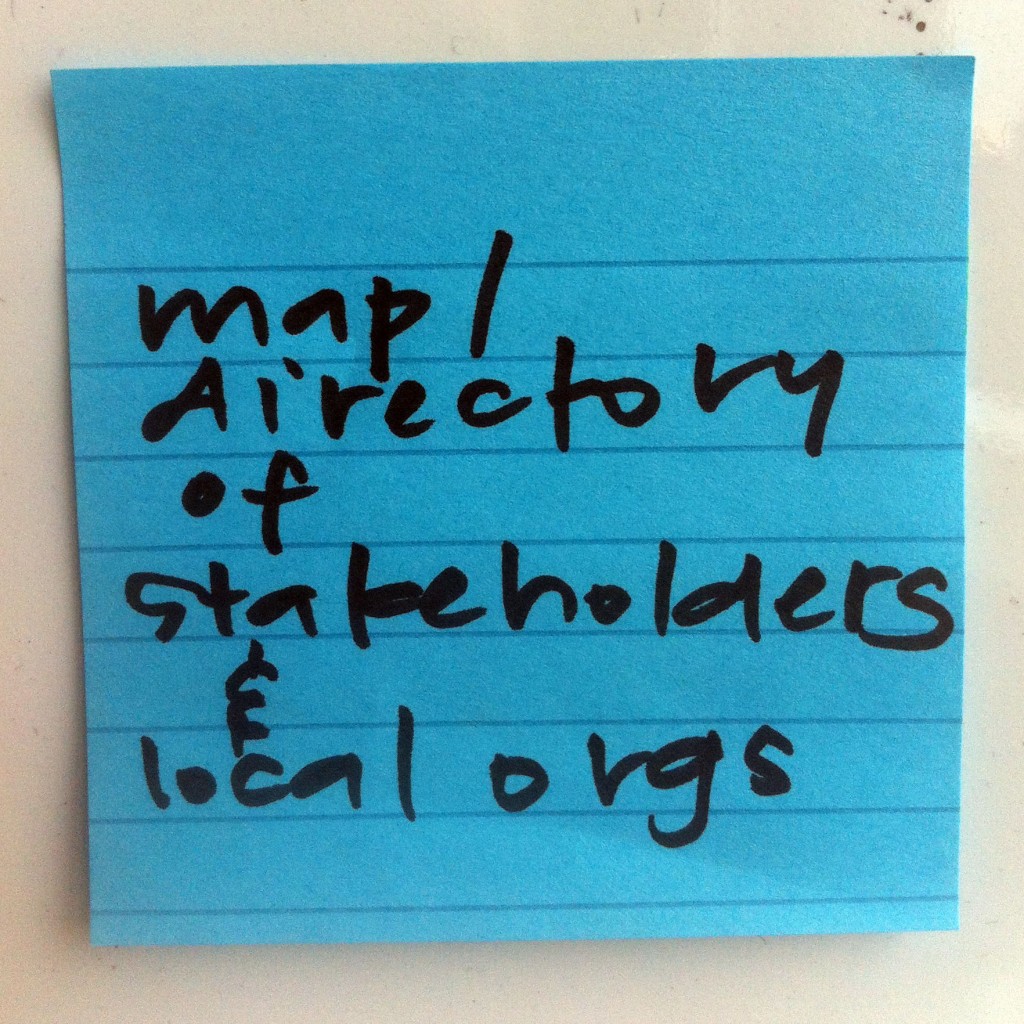 map/
directory
of
stakeholders
&
local orgs